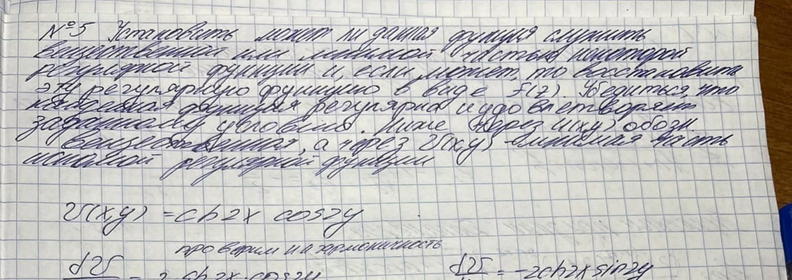 №5 Установить может ли данная функция служить
вещественной или мнимой частью некоторой
регулярной функции и, если может, то восстановить
эту регулярную функцию в виде F(z). Убедиться, что
найденная функция регулярна и удовлетворяет
заданному условию. Ниже через u(xy) обозн.
вещественная, а через V(xy) - мнимая часть
искомой регулярной функции
V(xy) = ch2x cos2y
проверим на гармоничность
dV = 2 ch2x·cos2y dV = -2ch2x sin2y